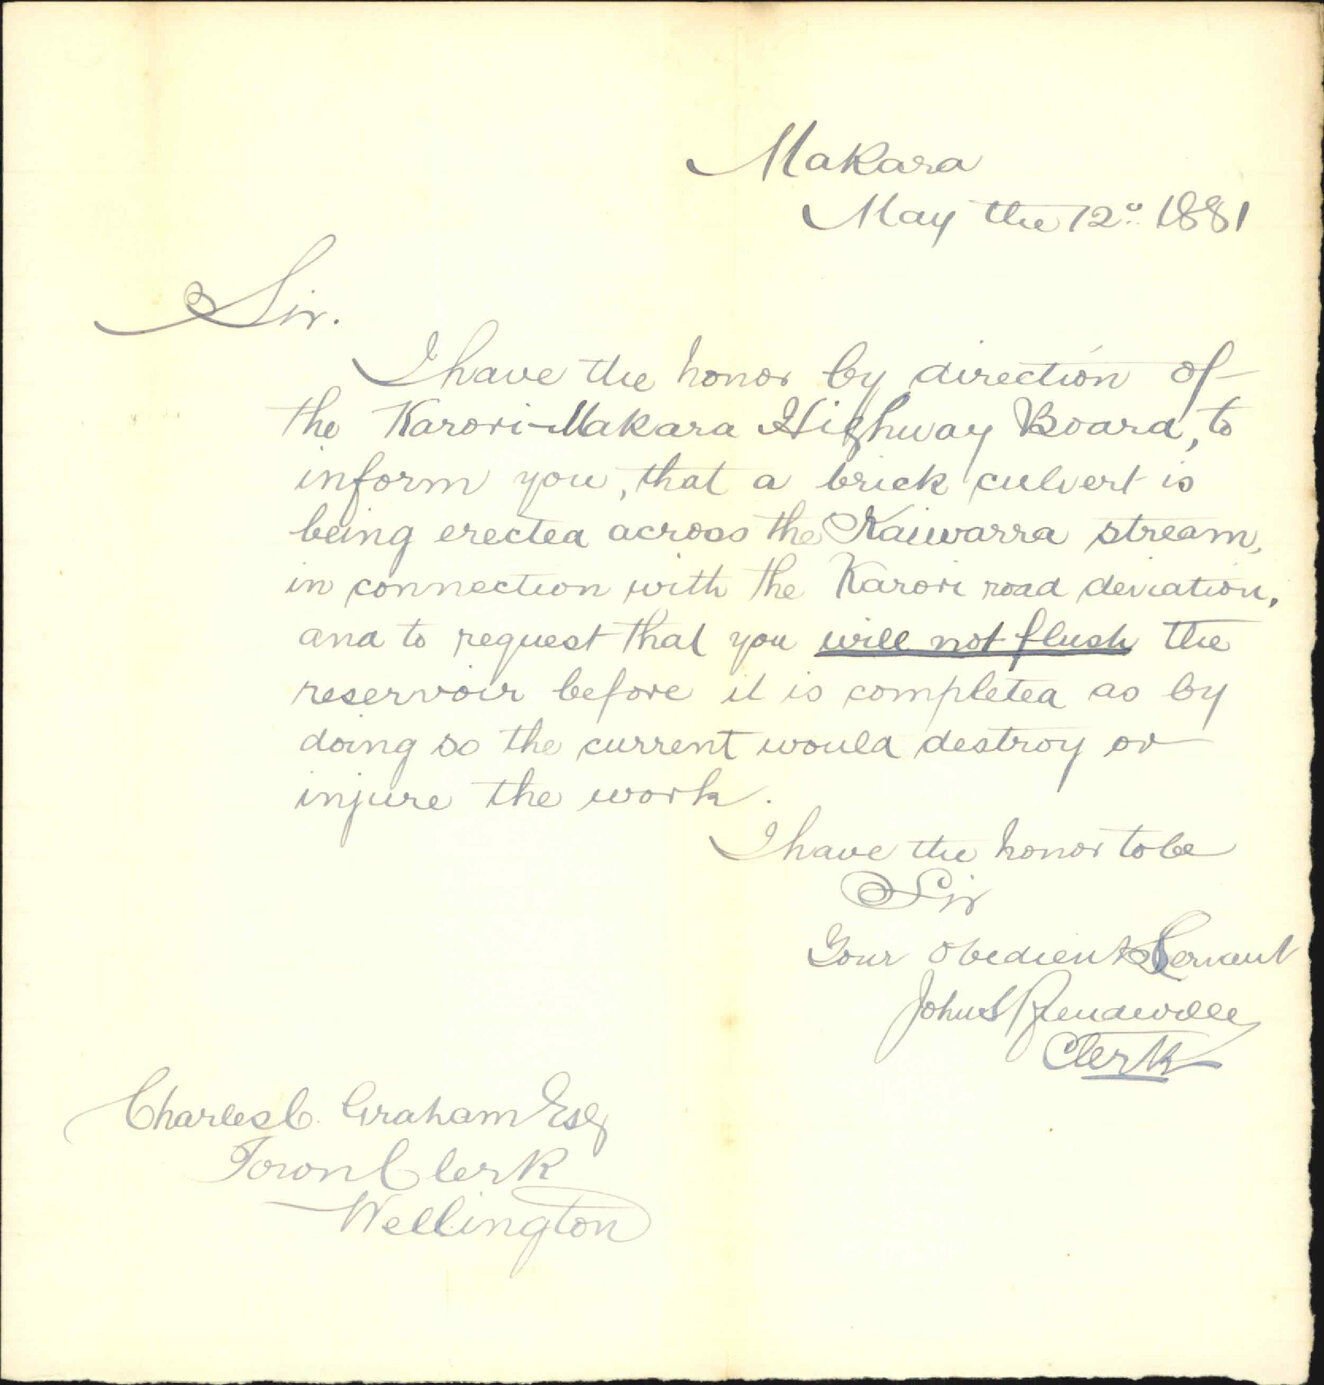 Makara
May the 12º 1881
Sir.
I have the honor by direction of
the Karori-Makara Highway Board, to
inform you, that a brick culvert is
being erected across the Kaiwarra stream,
in connection with the Karori road deviation,
and to request that you will not flush the
reservoir before it is completed as by
doing so the current would destroy or
injure the work.
I have the honor to be
Sir
Your obedient Servant
John S
Clerk
Charles C. Graham Esq
Town Clerk
Wellington